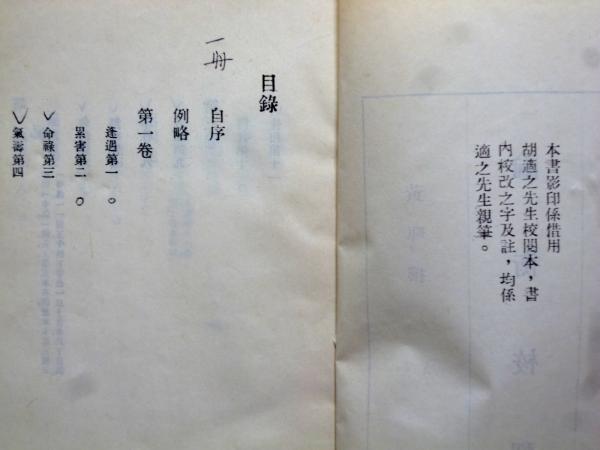 本書影印係借用
胡適之先生校閱本，書
內校改之字及註，均係
適之先生親筆。
一冊
目錄
自序
例略
第一卷
逢遇第一
累害第二
命祿第三
氣壽第四